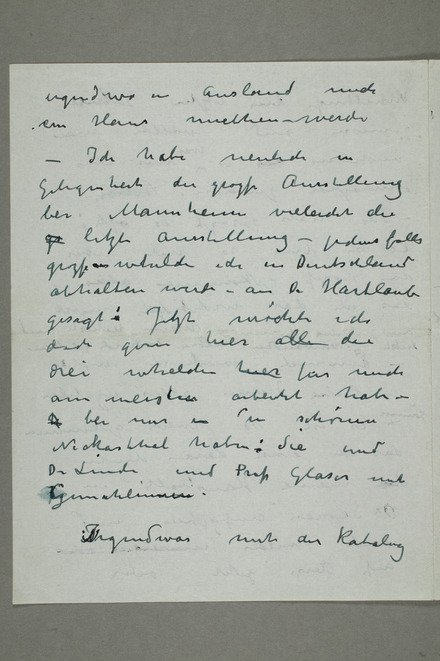 irgendwo in Ausland mude
ein Haus miethen werde
– Ich habe neulich in
Gelegenheit der grosse Ausstellung
bei Mannheim vieleicht die
letzte Ausstellung – jedenfalls
grosse welche ich in Deutschland
abhalten werde – an Dr Hartlaub
gesagt: Jetzt möchte ich
auch gern hier allen die
drei welchen hier for mich
am meisten arbeitet habe –
bei mir in schönen
Neckarthal haben: Sie und
Dr Linde und Prof Glaser mit
Gemahlinnen.
Irgendwas mit der Katalog